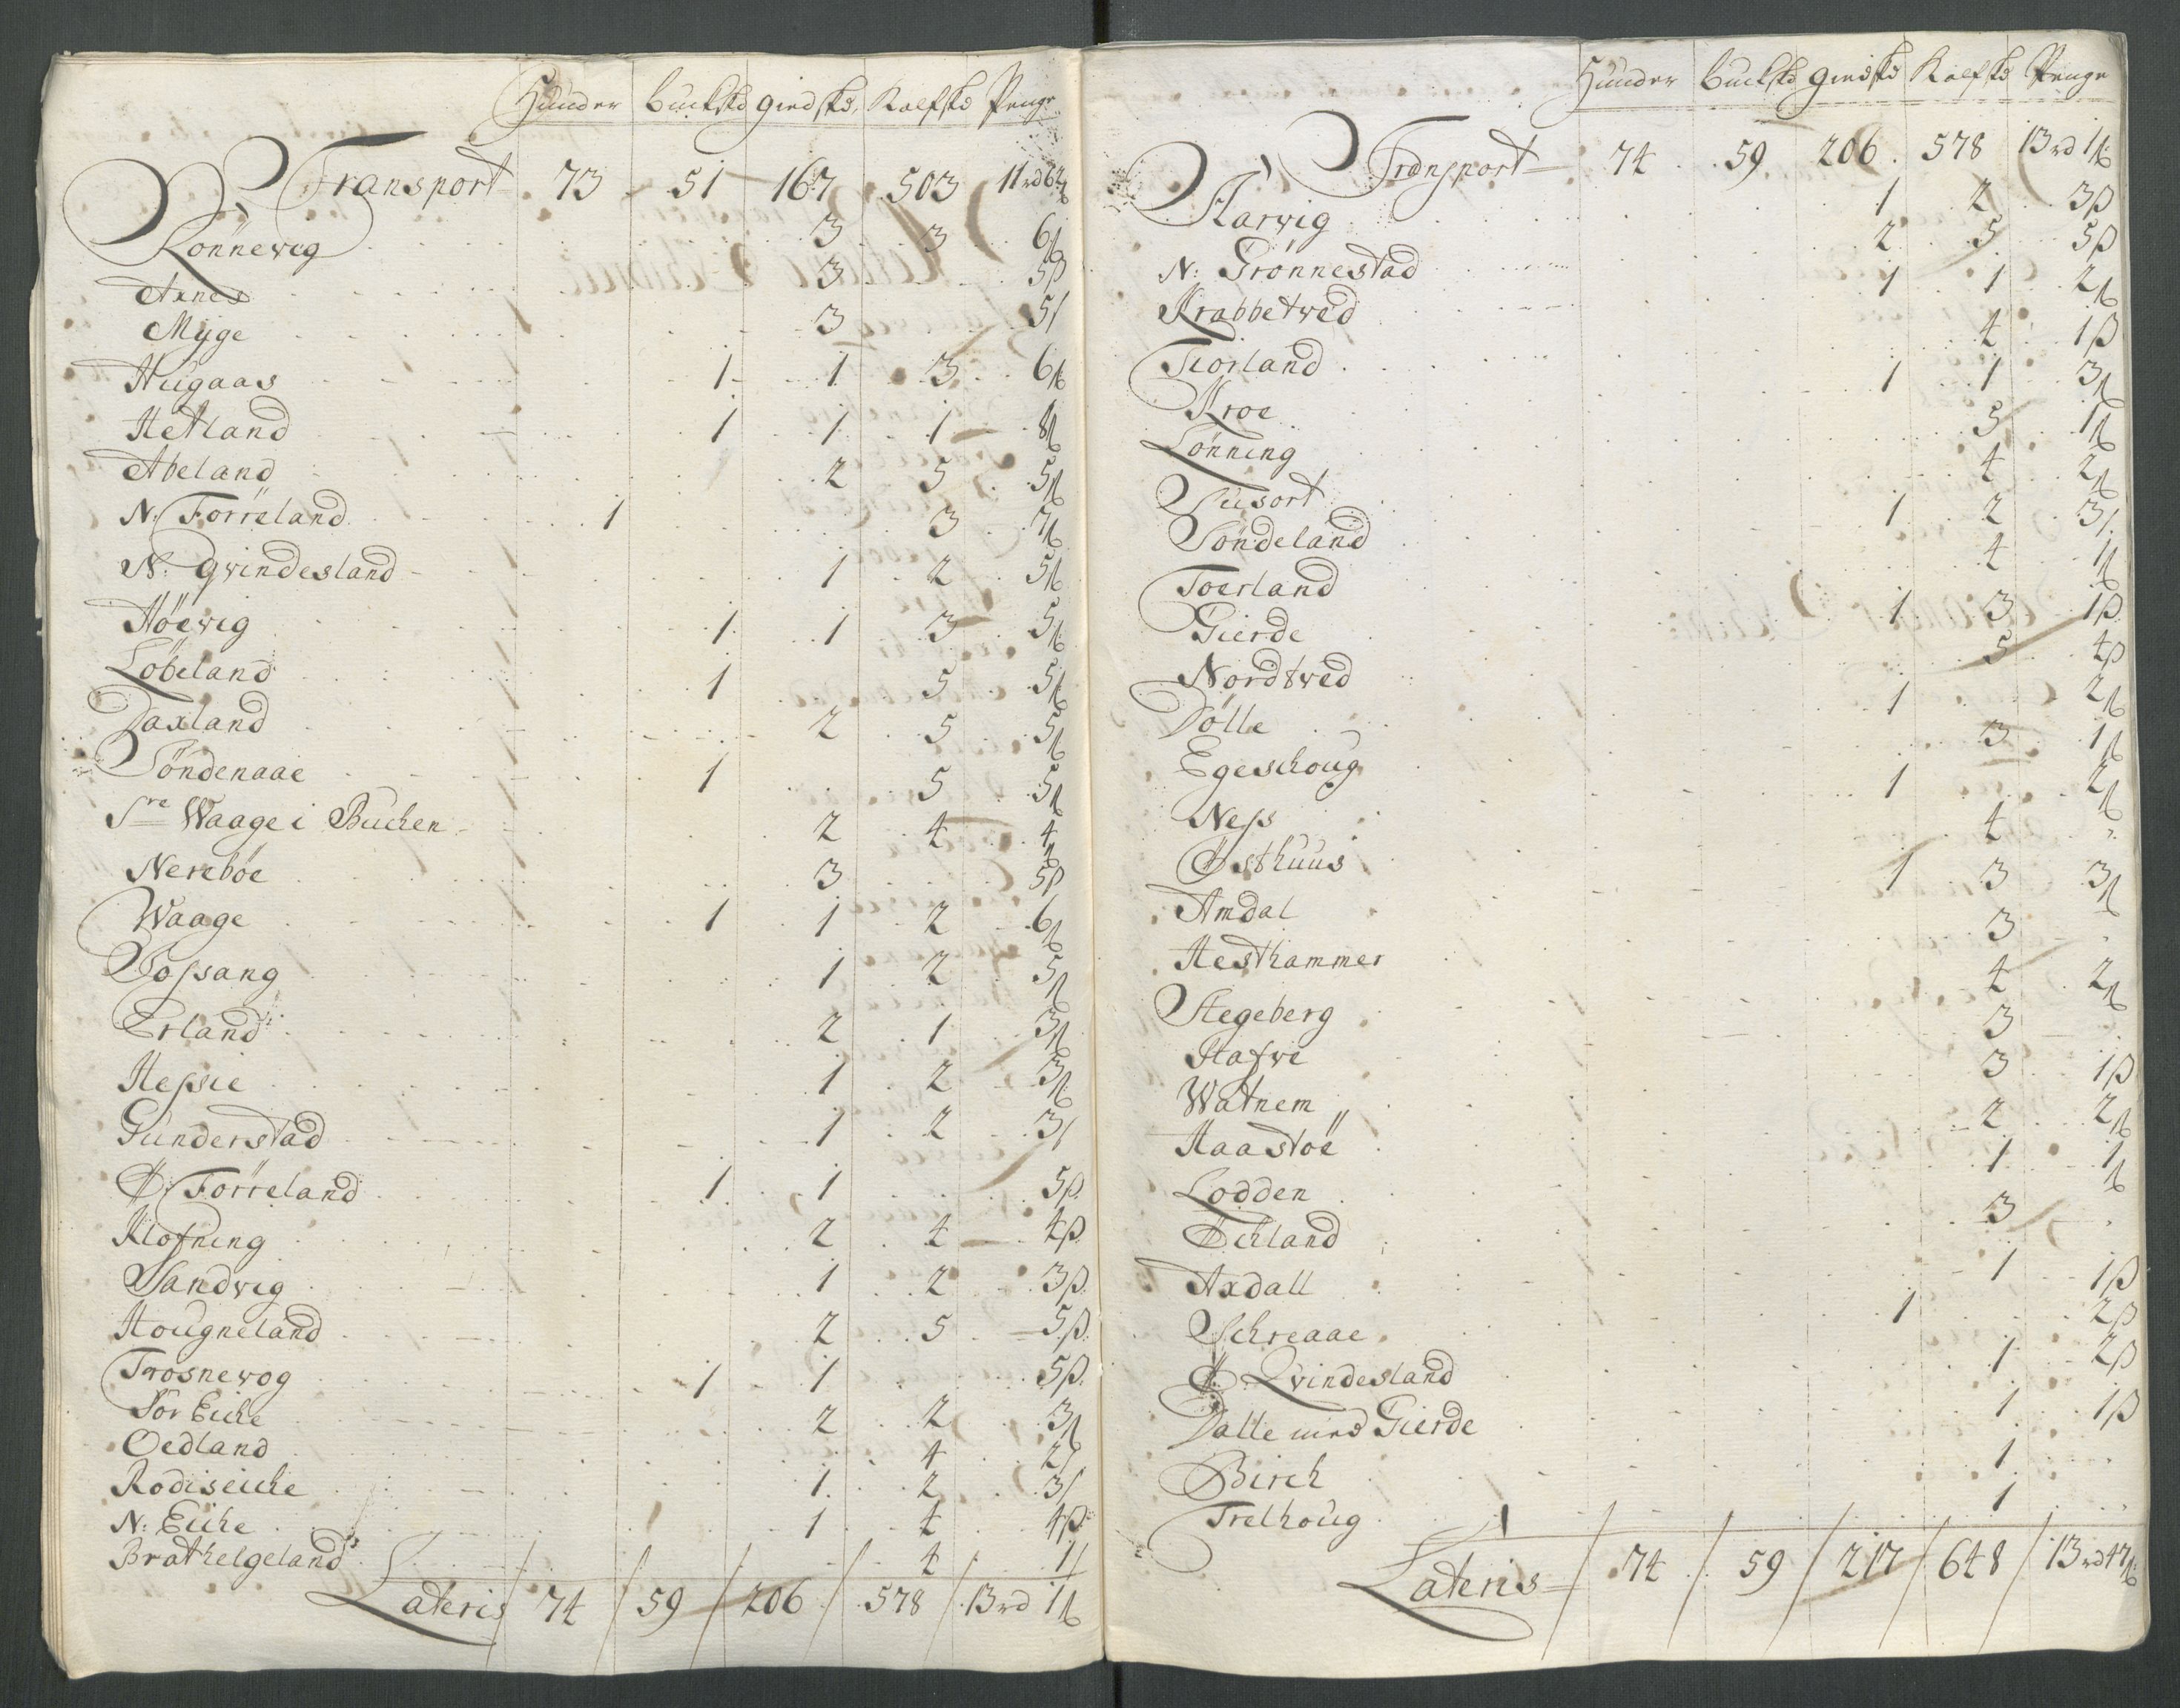 Hunder Buckskd giedskd. Kalfskd Penge
Transport 73 51 167 503 11rd62ß
Lönnevig 3 3 6ß
Axnes 3 5ß
Myge 3 5ß
Hugaas 1 1 3 6ß
Hetland 1 1 1 8ß
Abeland 2 5 5ß
N: Förreland 1 3 7ß
N: Qvindesland 1 2 5ß
Höevig 1 1 3 5ß
Löbeland 1 5 5ß
Daxland 2 5 5ß
Söndenaae 1 5 5ß
Sre Waage i Buchen 2 4 4ß
Nereböe 3 5ß
Waage 1 1 2 6ß
Fossang 1 2 5ß
Erland 2 1 3ß
Hessie 1 2 3ß
Gunderstad 1 2 3ß
Ø: Förreland 1 1 5ß
Klofning 2 4 4ß
Sandvig 1 2 3ß
Hougneland 2 5 5ß
Trosnevog 1 1 5ß
Sör Eiche 2 2 3ß
Oedland 4 2ß
Rodiseiche 1 2 3ß
N: Eiche 1 4 4ß
Brathelgeland 4 1ß
Lateris 74 59 206 578 13rd 1ß
Hunder Buckskd giedskd Kalfskd Penge
Transport 74 59 206 578 13rd 1ß
Harvig 1 2 3ß
N: Grönnestad 2 5 5ß
Krabbetved 1 1 2ß
Tiorland 4 1ß
Kroe 1 1 3ß
Lönning 5 1ß
Susort 4 2ß
Söndeland 1 2 3ß
Toerland 4 1ß
Gierde 1 3 1ß
Nordtved 5 4ß
Dölle 1 2ß
Egeschoug 3 1ß
Ness 1 2ß
Østhuus 4
Amdal 1 3 3ß
Hesthammer 3
Stegeberg 4 2ß
Hafve 3
Watnem 3 1ß
Haastöe 2 2ß
Lodden 1 1ß
Øchland 3
Axdall 1 1ß
Schreaae 1 2ß
Ø: Qvindesland 1 2ß
Dalle med Gierde 1 1ß
Birch 1
Trelhoug 1
Lateris 74 59 217 648 13rd47ß